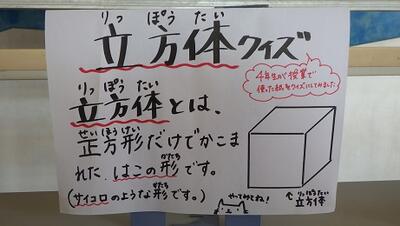 りっ ぽう たい
立方体クイズ
4年生が授業で
使った紙をクイズにしてみました
りっ ぽう たい
立方体とは、
せい ほう けい
正方形だけでかこま
れた はこの形です。
かたち
(サイコロのような形です。)
かたち
やってみてね!
↑立方体
りっぽうたい